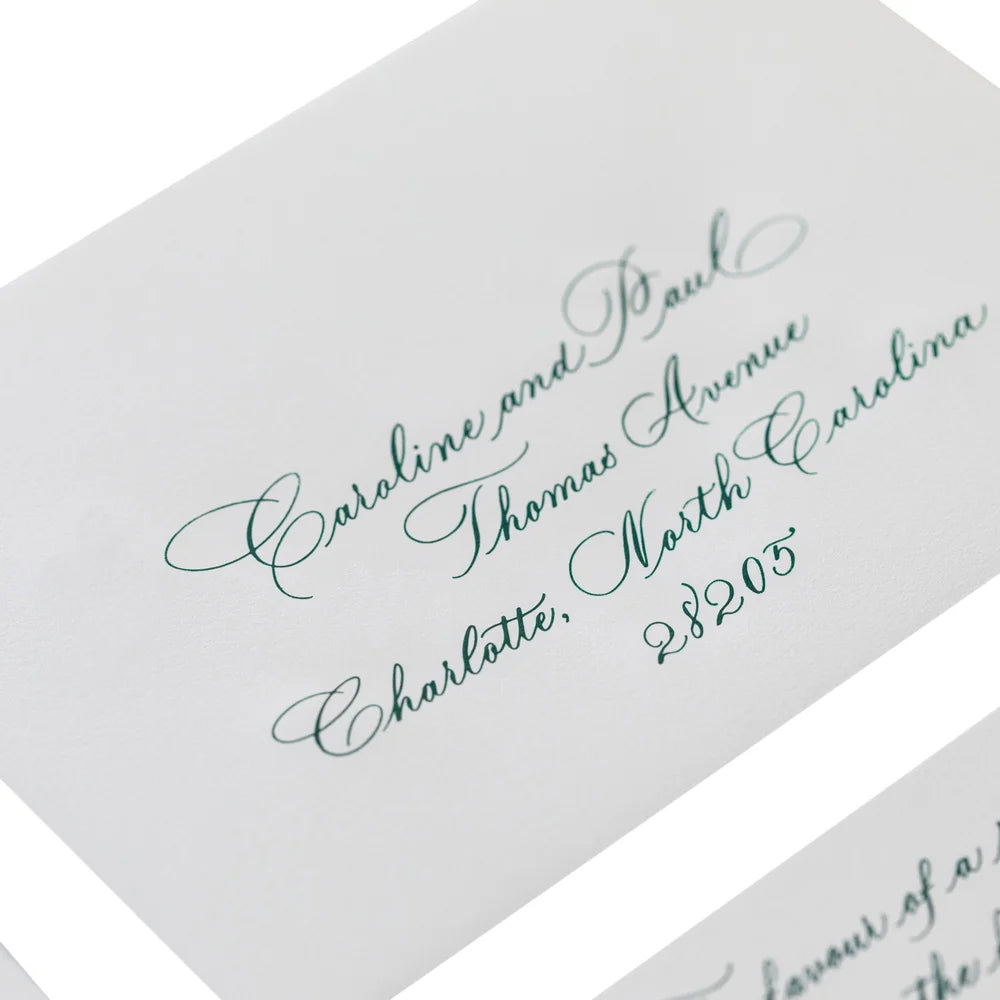 Caroline and Paul
Thomas Avenue
Charlotte, North Carolina
28205
favour of a
the